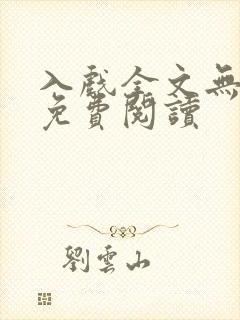 入戲全文無
免費閱讀
劉雲山